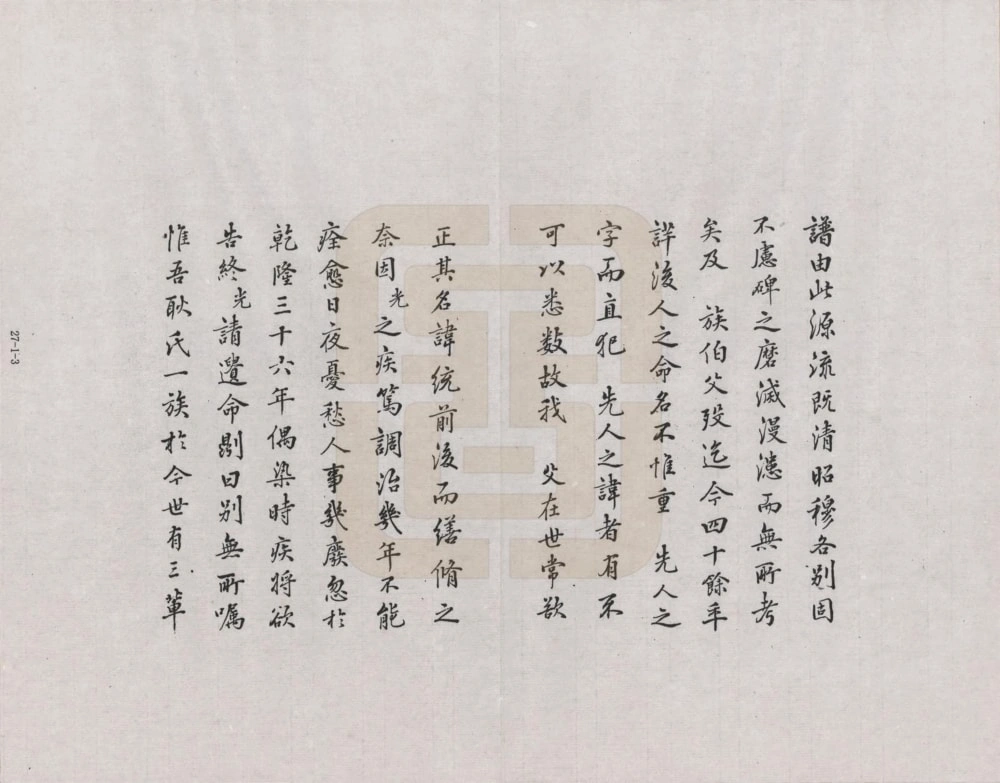 譜由此源流既清昭穆各别固
不慮碑之磨滅漫漶而無所考
矣及　族伯父歿迄今四十餘年
詳後人之命名不惟重　先人之
字而直犯　先人之諱者有不
可以悉数故我　父在世常欲
正其名諱统前後而缮脩之
奈因光之疾篤調治幾年不能
痊愈日夜憂愁人事幾廢忽於
乾隆三十六年偶染時疾将欲
告終光請遺命勗曰别無所嘱
惟吾耿氏一族於今世有三輩
27-1-3